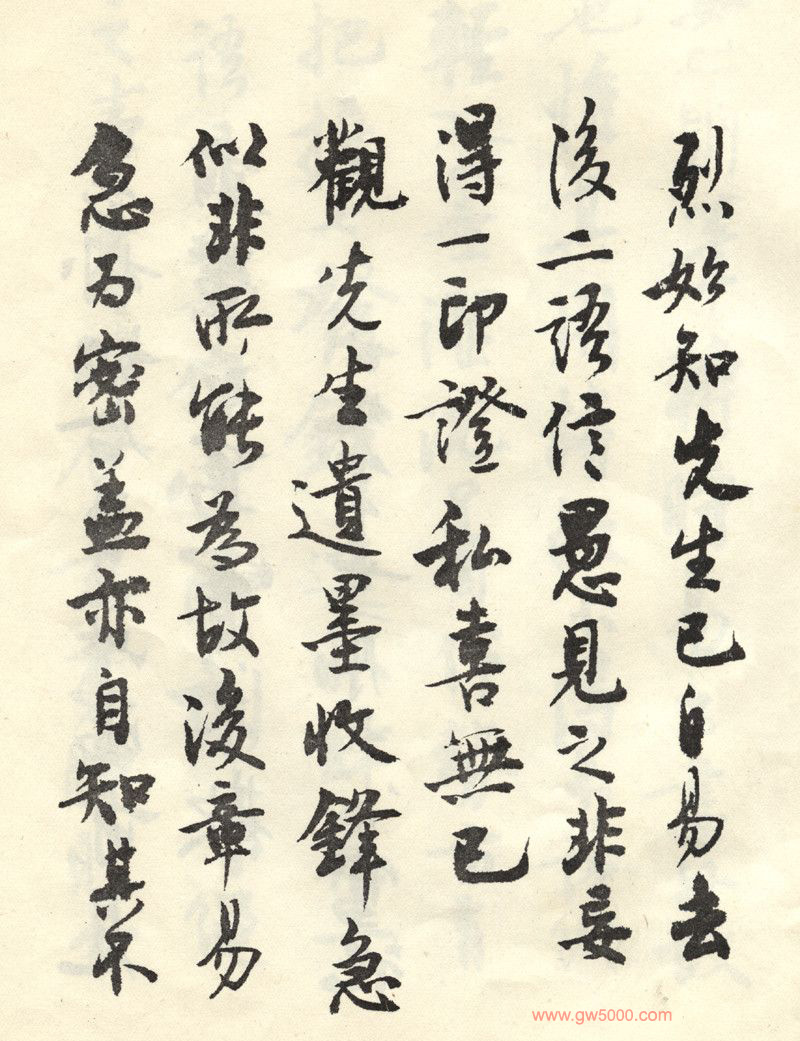 烈始知先生已自易去
後二語信愚見之非妄
得一印證私喜無已
觀先生遺墨收鋒急
似非所能為故後章易
急为密盖亦自知其不
www.gw5000.com